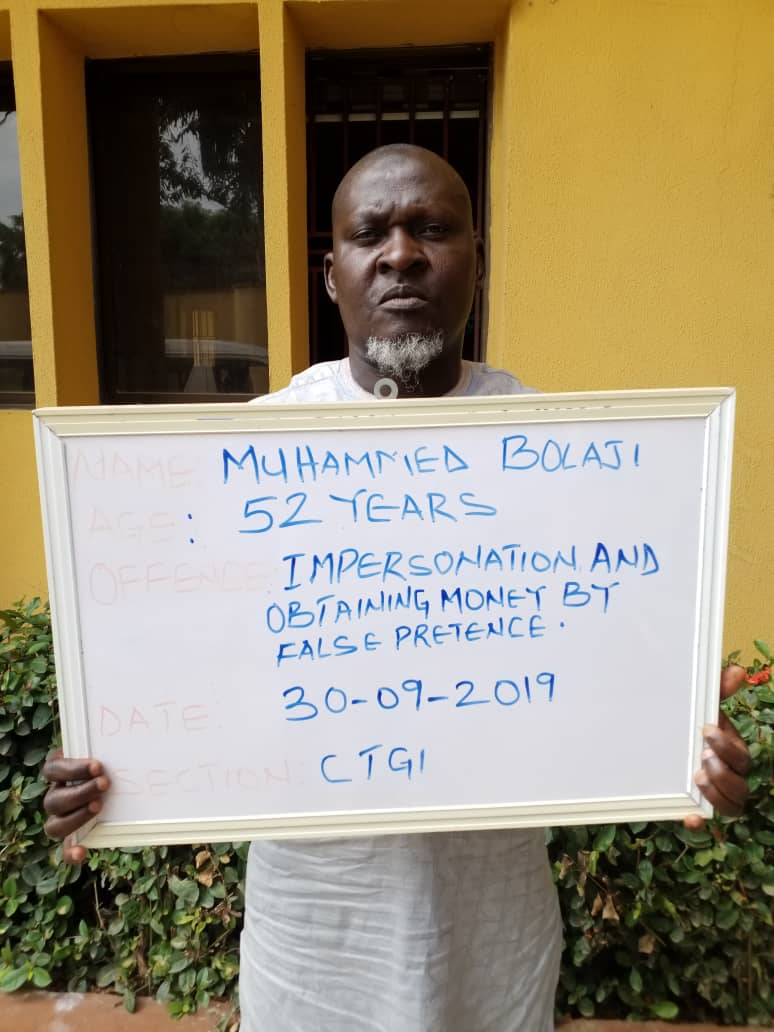 NAME: MUHAMMED BOLAJI
AGE: 52 YEARS
OFFENCE: IMPERSONATION AND
OBTAINING MONEY BY
FALSE PRETENCE.
DATE: 30-09-2019
SECTION: CTGI